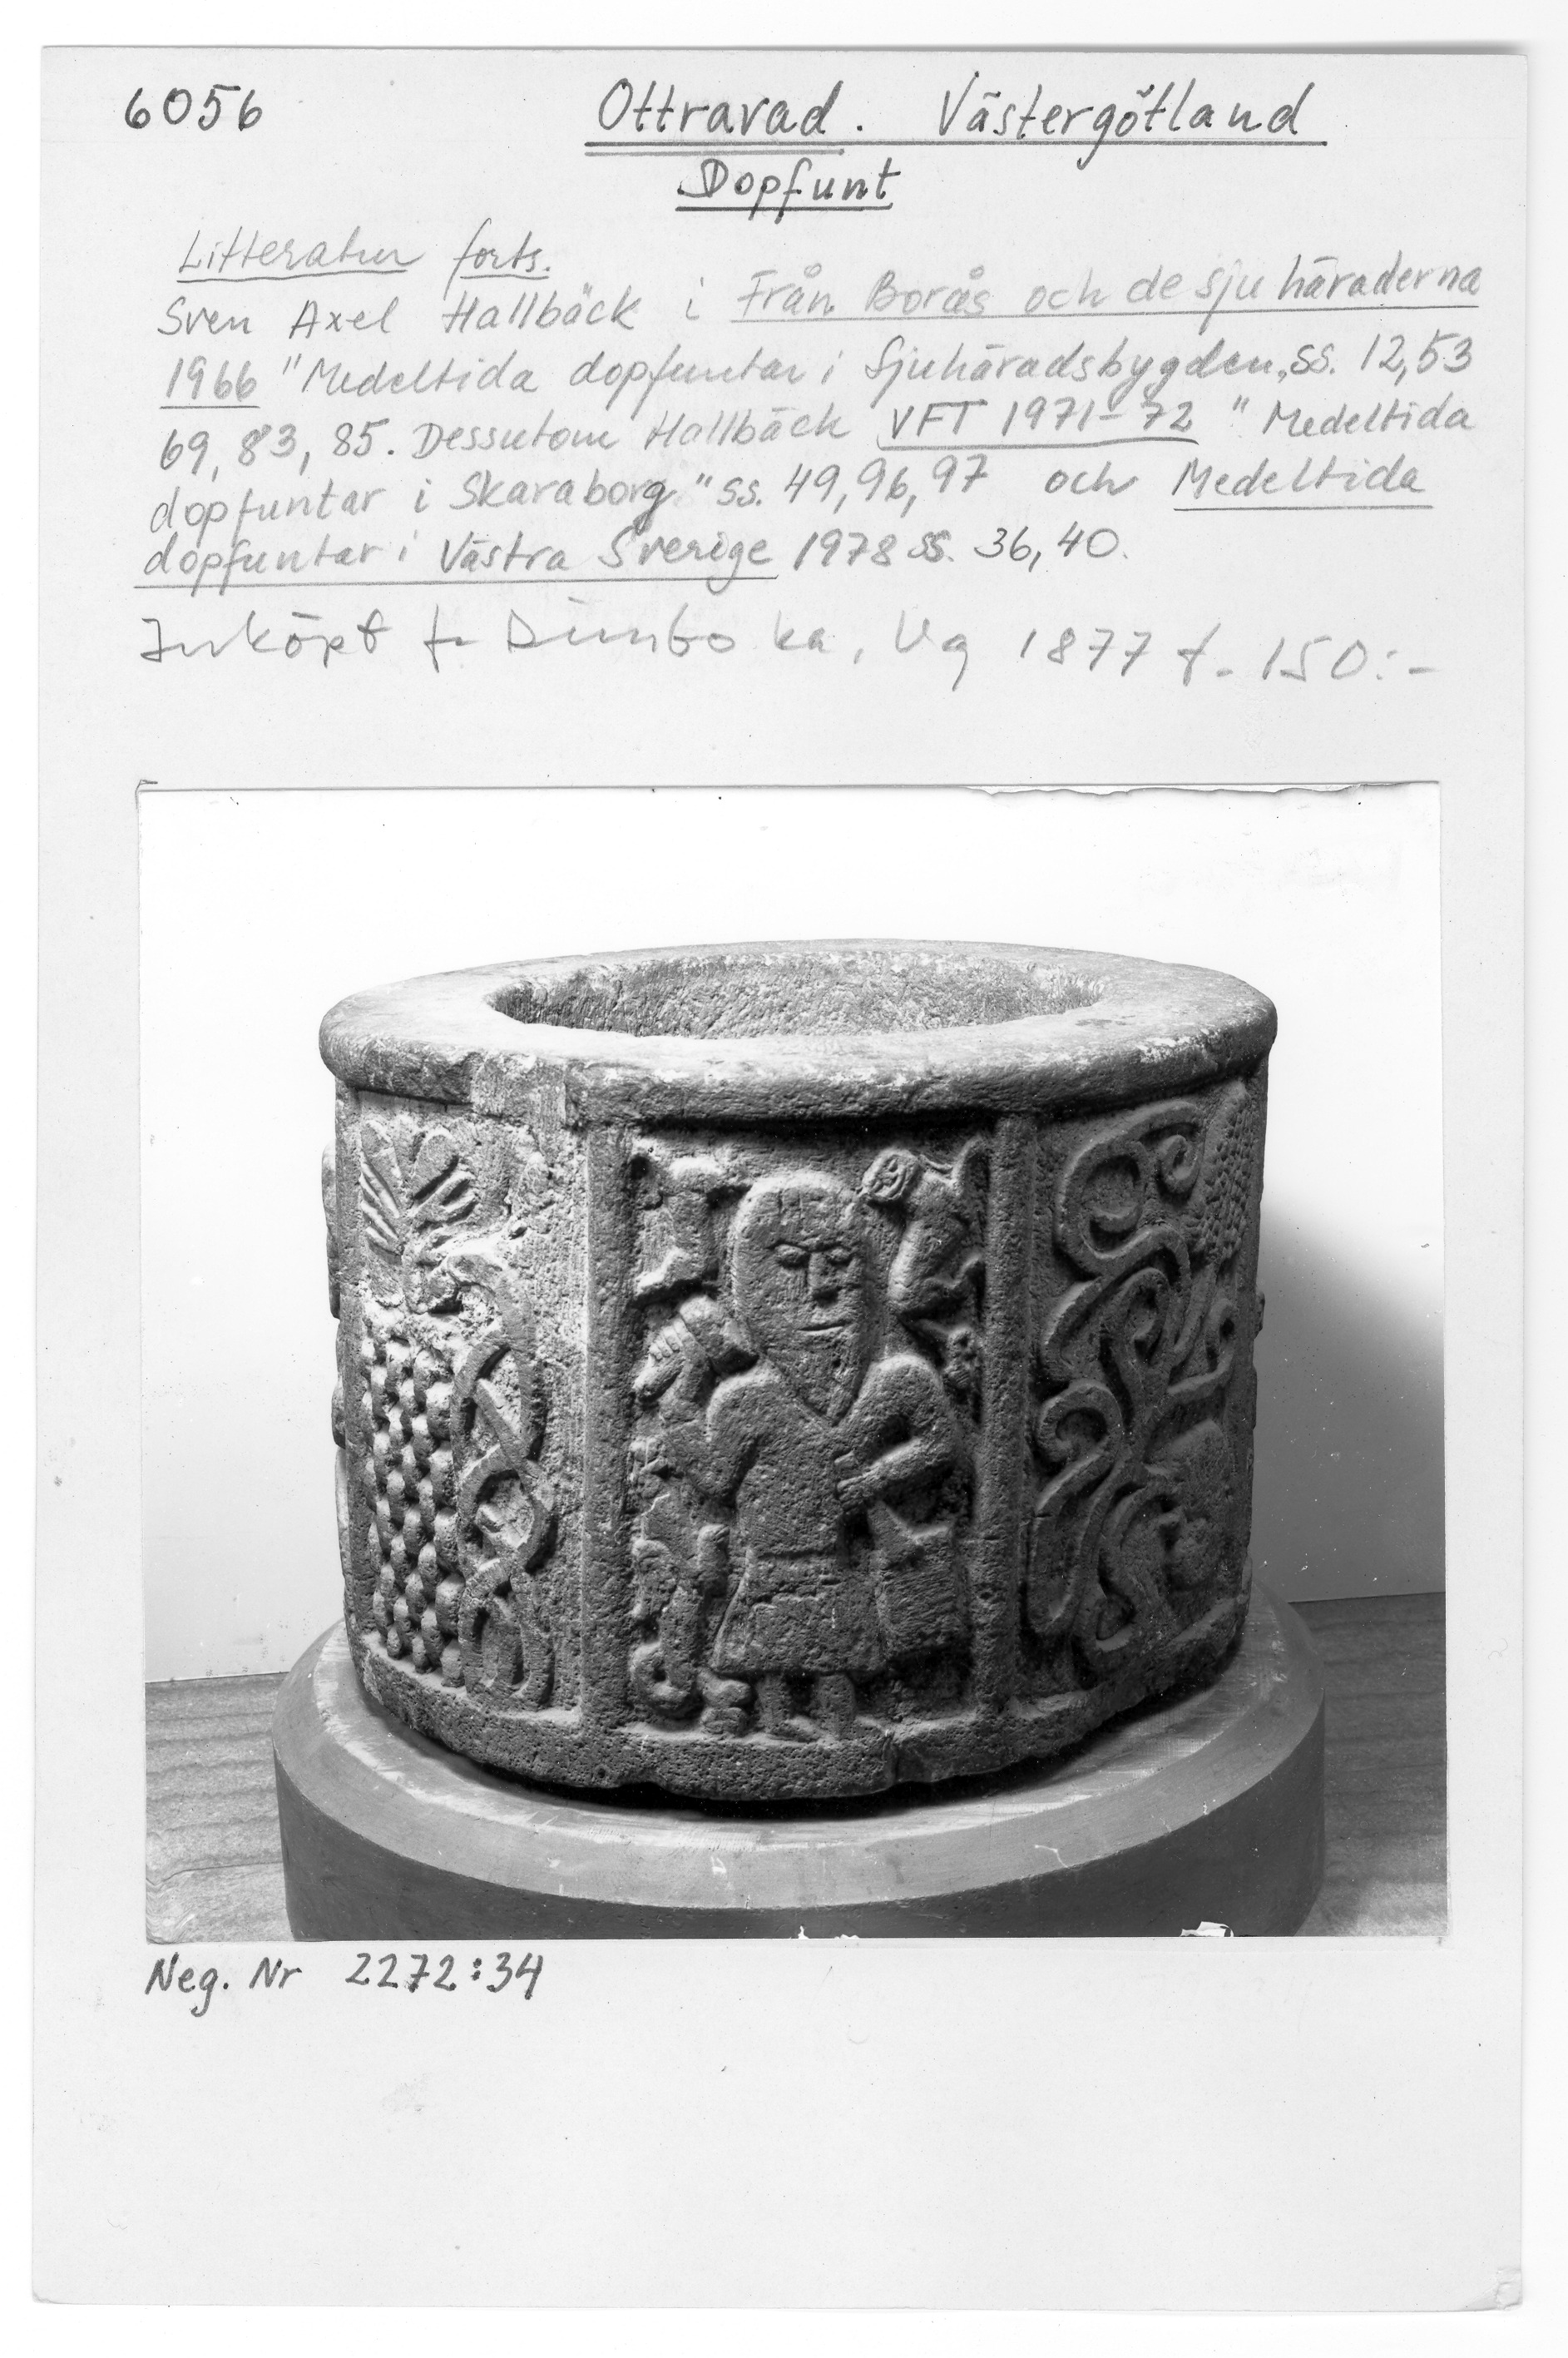 6056
Ottravad. Västergötland
Dopfunt
Litteratur forts.
Sven Axel Hallbäck i Från Borås och de sju häraderna
1966 "Medeltida dopfuntar i Sjuhäradsbygden" ss. 12,53
69, 83, 85. Dessutom Hallbäck VFT 1971-72 "Medeltida
dopfuntar i Skaraborg" ss. 49, 96, 97 och Medeltida
dopfuntar i Västra Sverige 1978 ss. 36, 40.
Inköpt fr Dimbo ka, Vg 1877 f. 150:-
Neg. Nr 2272:34